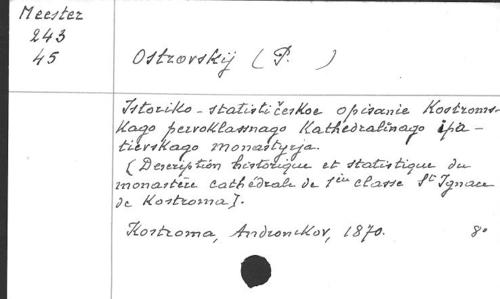 Meester
243
45
Ostrovskij (P. )
Istoriko-statističeskoe opisanie Kostroms-
kago pervoklassnago Kathedralinago ipa-
tievskago monastyrja.
(Description historique et statistique du
monastère cathédrale de 1ère classe St Ignace
de Kostroma).
Kostroma, Andronikov, 1870. 8°